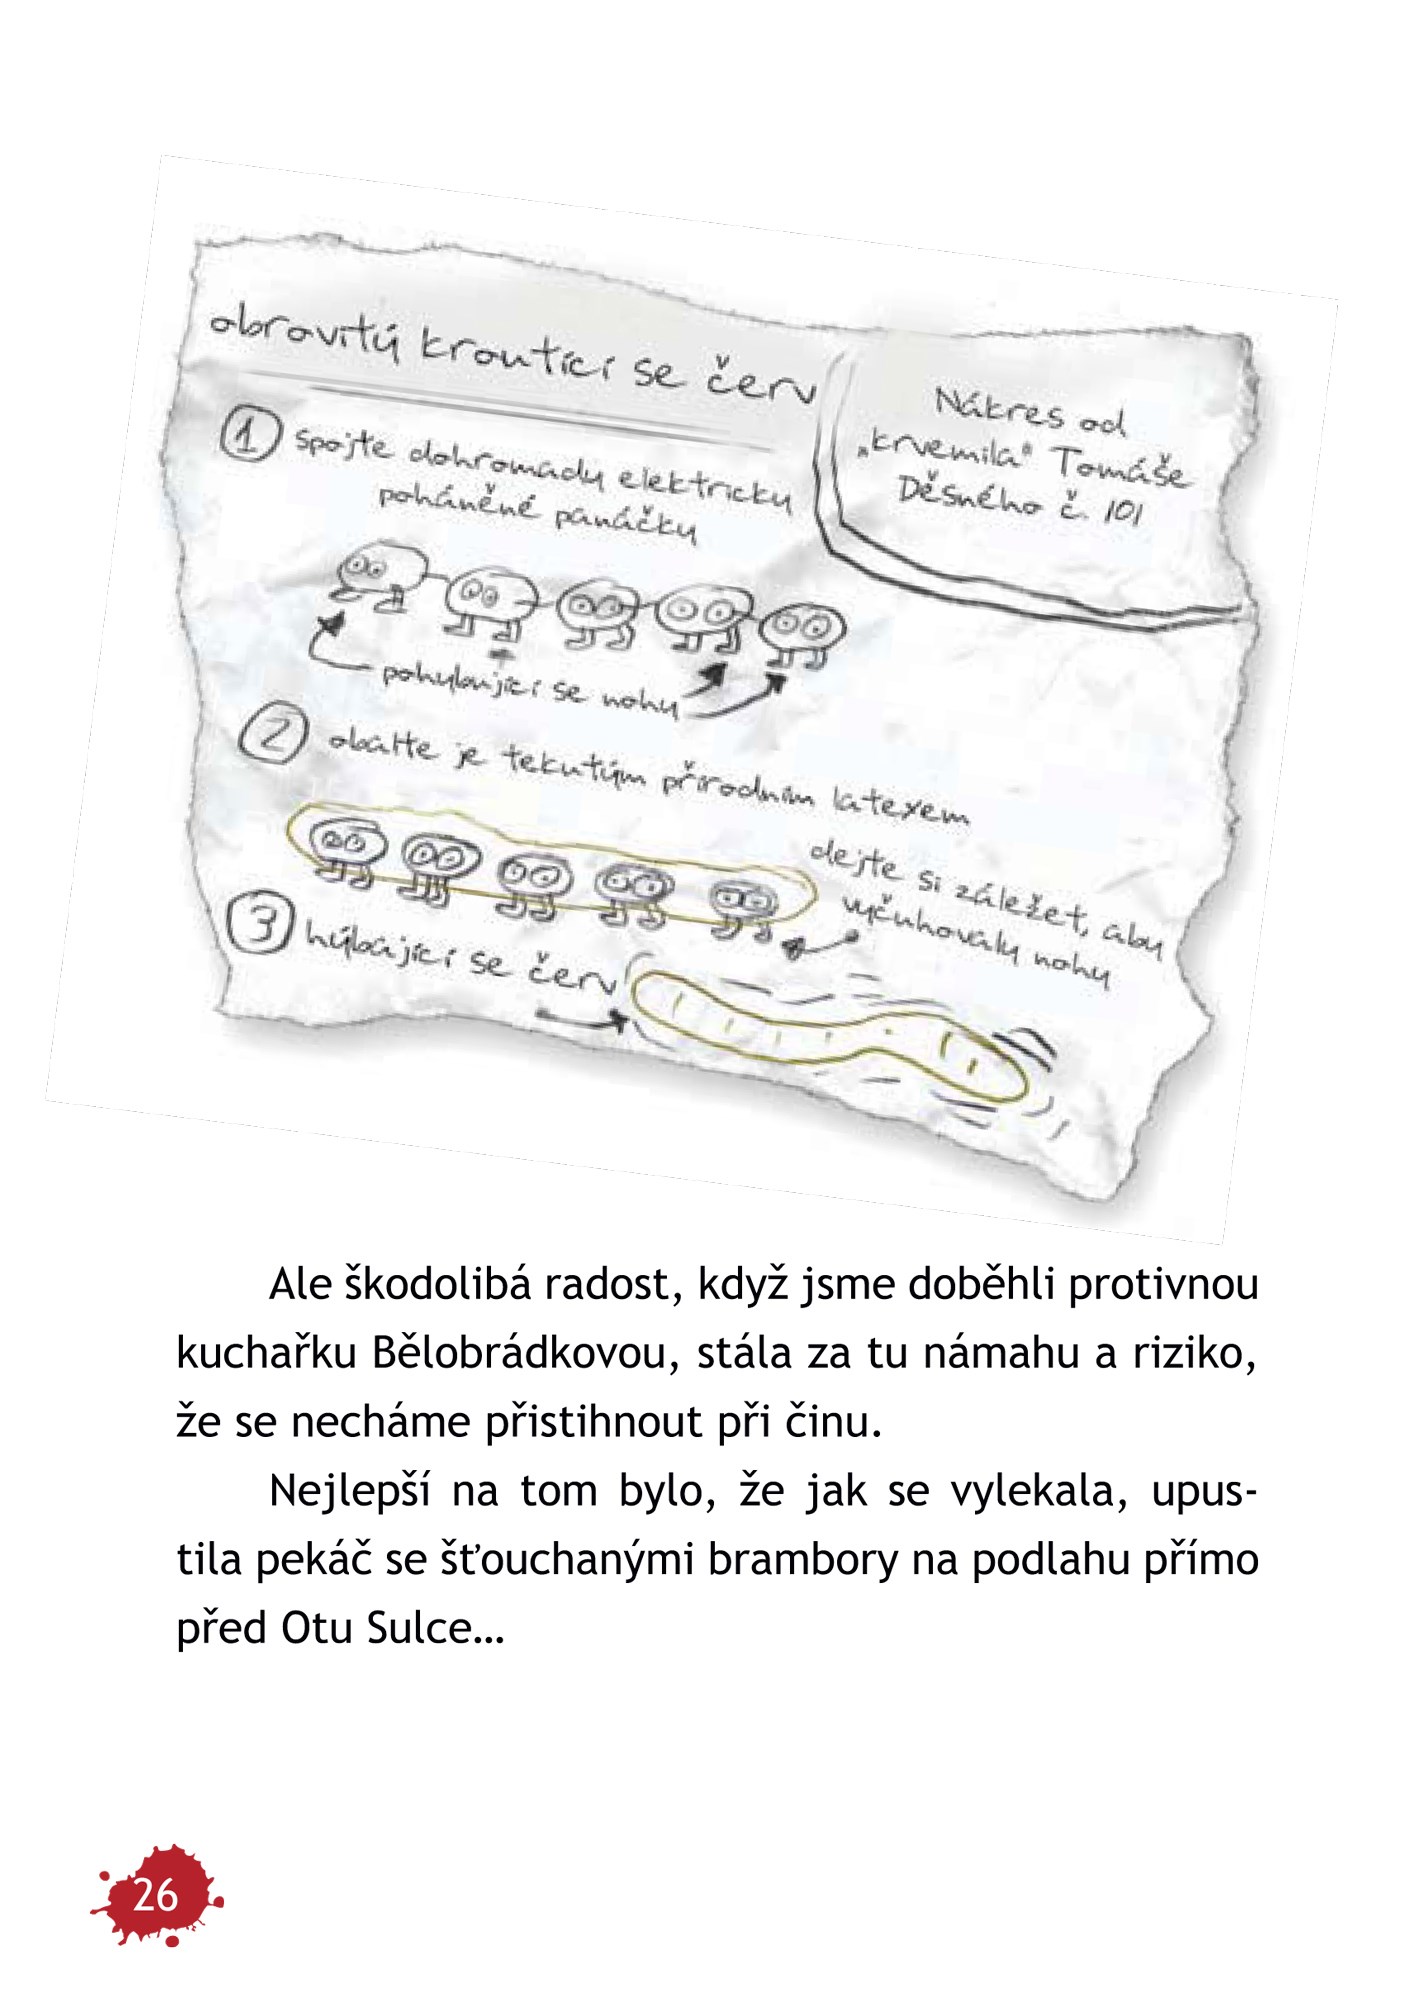 obrovitý kroutící se červ
Nákres od
„krvemila“ Tomáše
Děsného č. 101
1 spojte dohromady elektricky
poháněné panáčky
pohybující se nohy
2 obalte je tekutým přírodním latexem
dejte si záležet, aby
vyčuhovaly nohy
3 hýbající se červ
Ale škodolibá radost, když jsme doběhli protivnou
kuchařku Bělobrádkovou, stála za tu námahu a riziko,
že se necháme přistihnout při činu.
Nejlepší na tom bylo, že jak se vylekala, upus-
tila pekáč se šťouchanými brambory na podlahu přímo
před Otu Sulce…
26